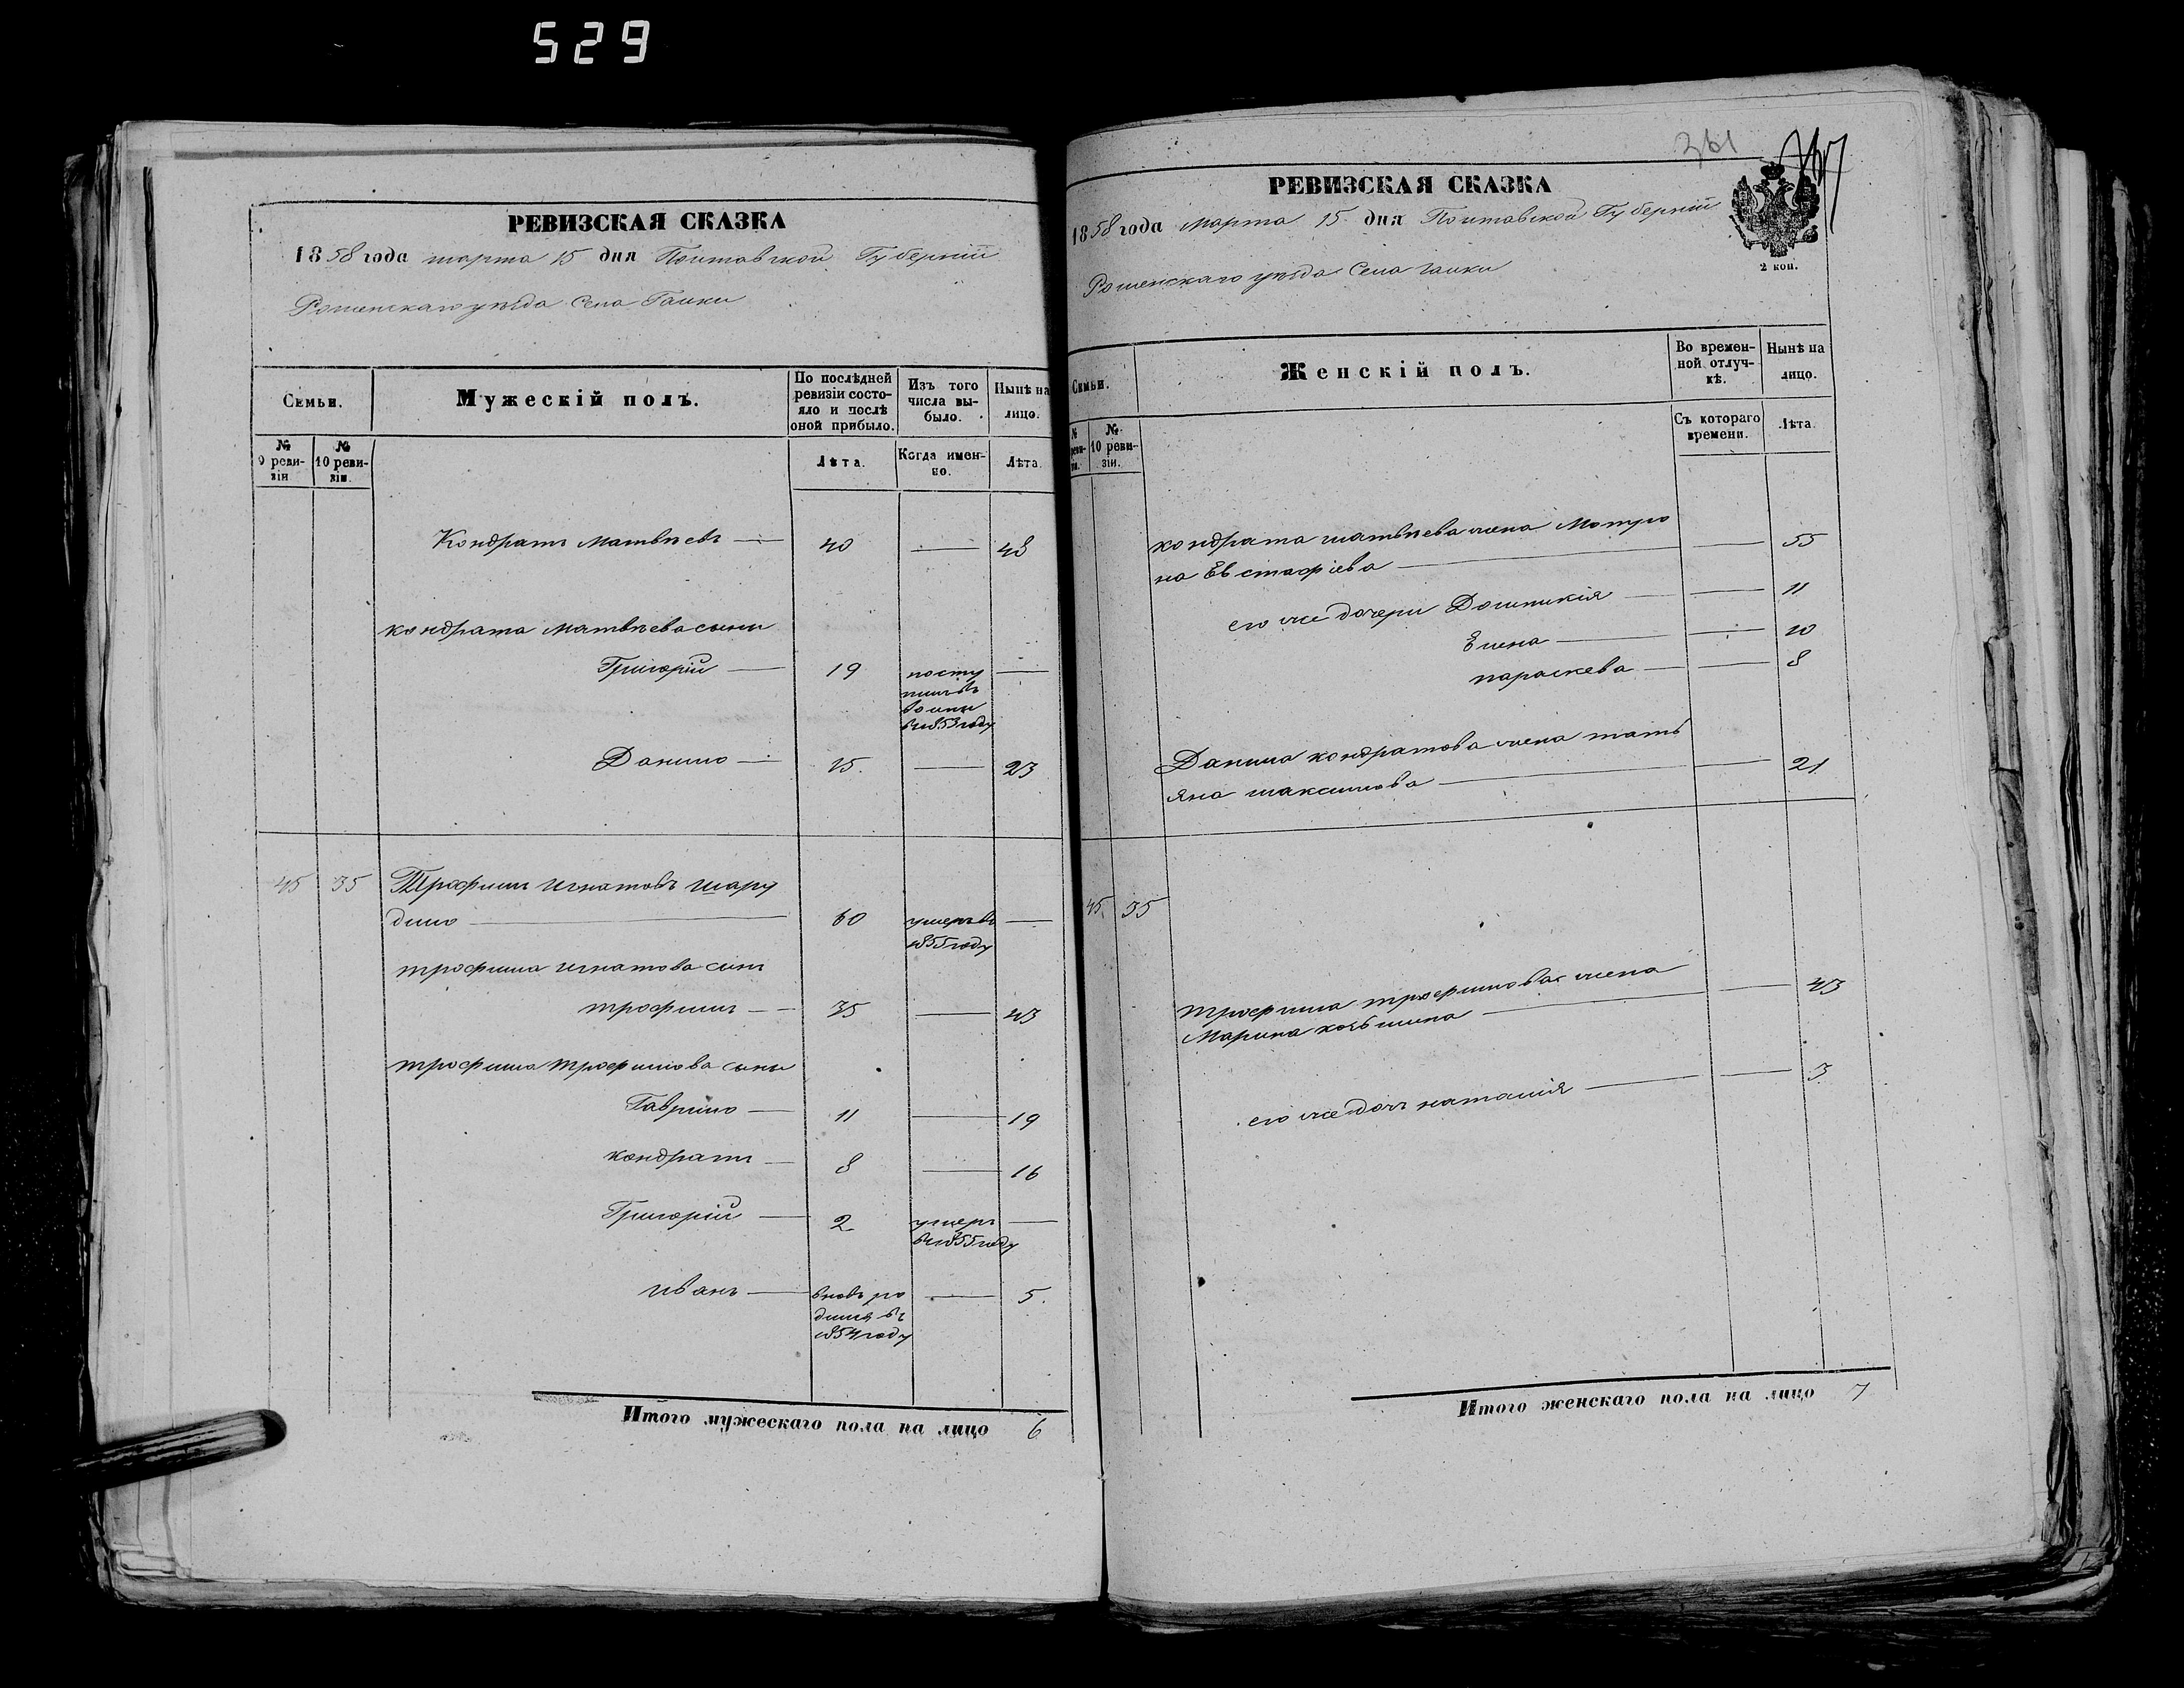 529
РЕВИЗСКАЯ СКАЗКА
1858 года марта 15 дня Полтавской Губерніи
Роменскаго уѣзда Села Галки
Семьи.
Мужескій полъ.
По послѣдней ревизіи состояло и послѣ оной прибыло.
Изъ того числа выбыло.
Нынѣ на лицо.
№ 9 ревизіи
№ 10 ревизіи.
Лѣта.
Когда именно.
Лѣта.
Кондратъ Матвѣевъ — 40 — 48
Кондрата Матвѣева сыны
Григорій — 19 посту
пилъ въ
воины
въ 1853 году —
Данило — 15. — 23
45 35 Трофимъ Игнатовъ Шару
дило — 60 умеръ въ —
1855 году
Трофима Игнатова сынъ
Трофимъ — 35 — 43
Трофима Трофимова сыны
Гаврило — 11 — 19
Кондратъ — 8 — 16
Григорій — 2 умеръ —
въ 1855 году
Иванъ — вновь ро — 5.
дился въ
1854 году
Итого мужескаго пола на лицо 6
361
РЕВИЗСКАЯ СКАЗКА
1858 года Марта 15 дня Полтавской Губерніи
2 коп.
Роменскаго уѣзда Села Галки
Семьи.
Женскій полъ.
Во временной отлучкѣ.
Нынѣ на лицо.
№
реви-
зіи.
№ 10 ревизіи.
Съ котораго времени.
Лѣта.
Кондрата Матвѣева жена Мотро
на Евстафіева — — 55
его же дочери Домникія — — 11
Елена — — 10
Параскева — — 8
Данила Кондратова жена Тать
яна Максимова — — 21
45. 35
Трофима Трофимова жена
Марина — — 43
его же дочь Наталія — — 3
Итого женскаго пола на лицо 7